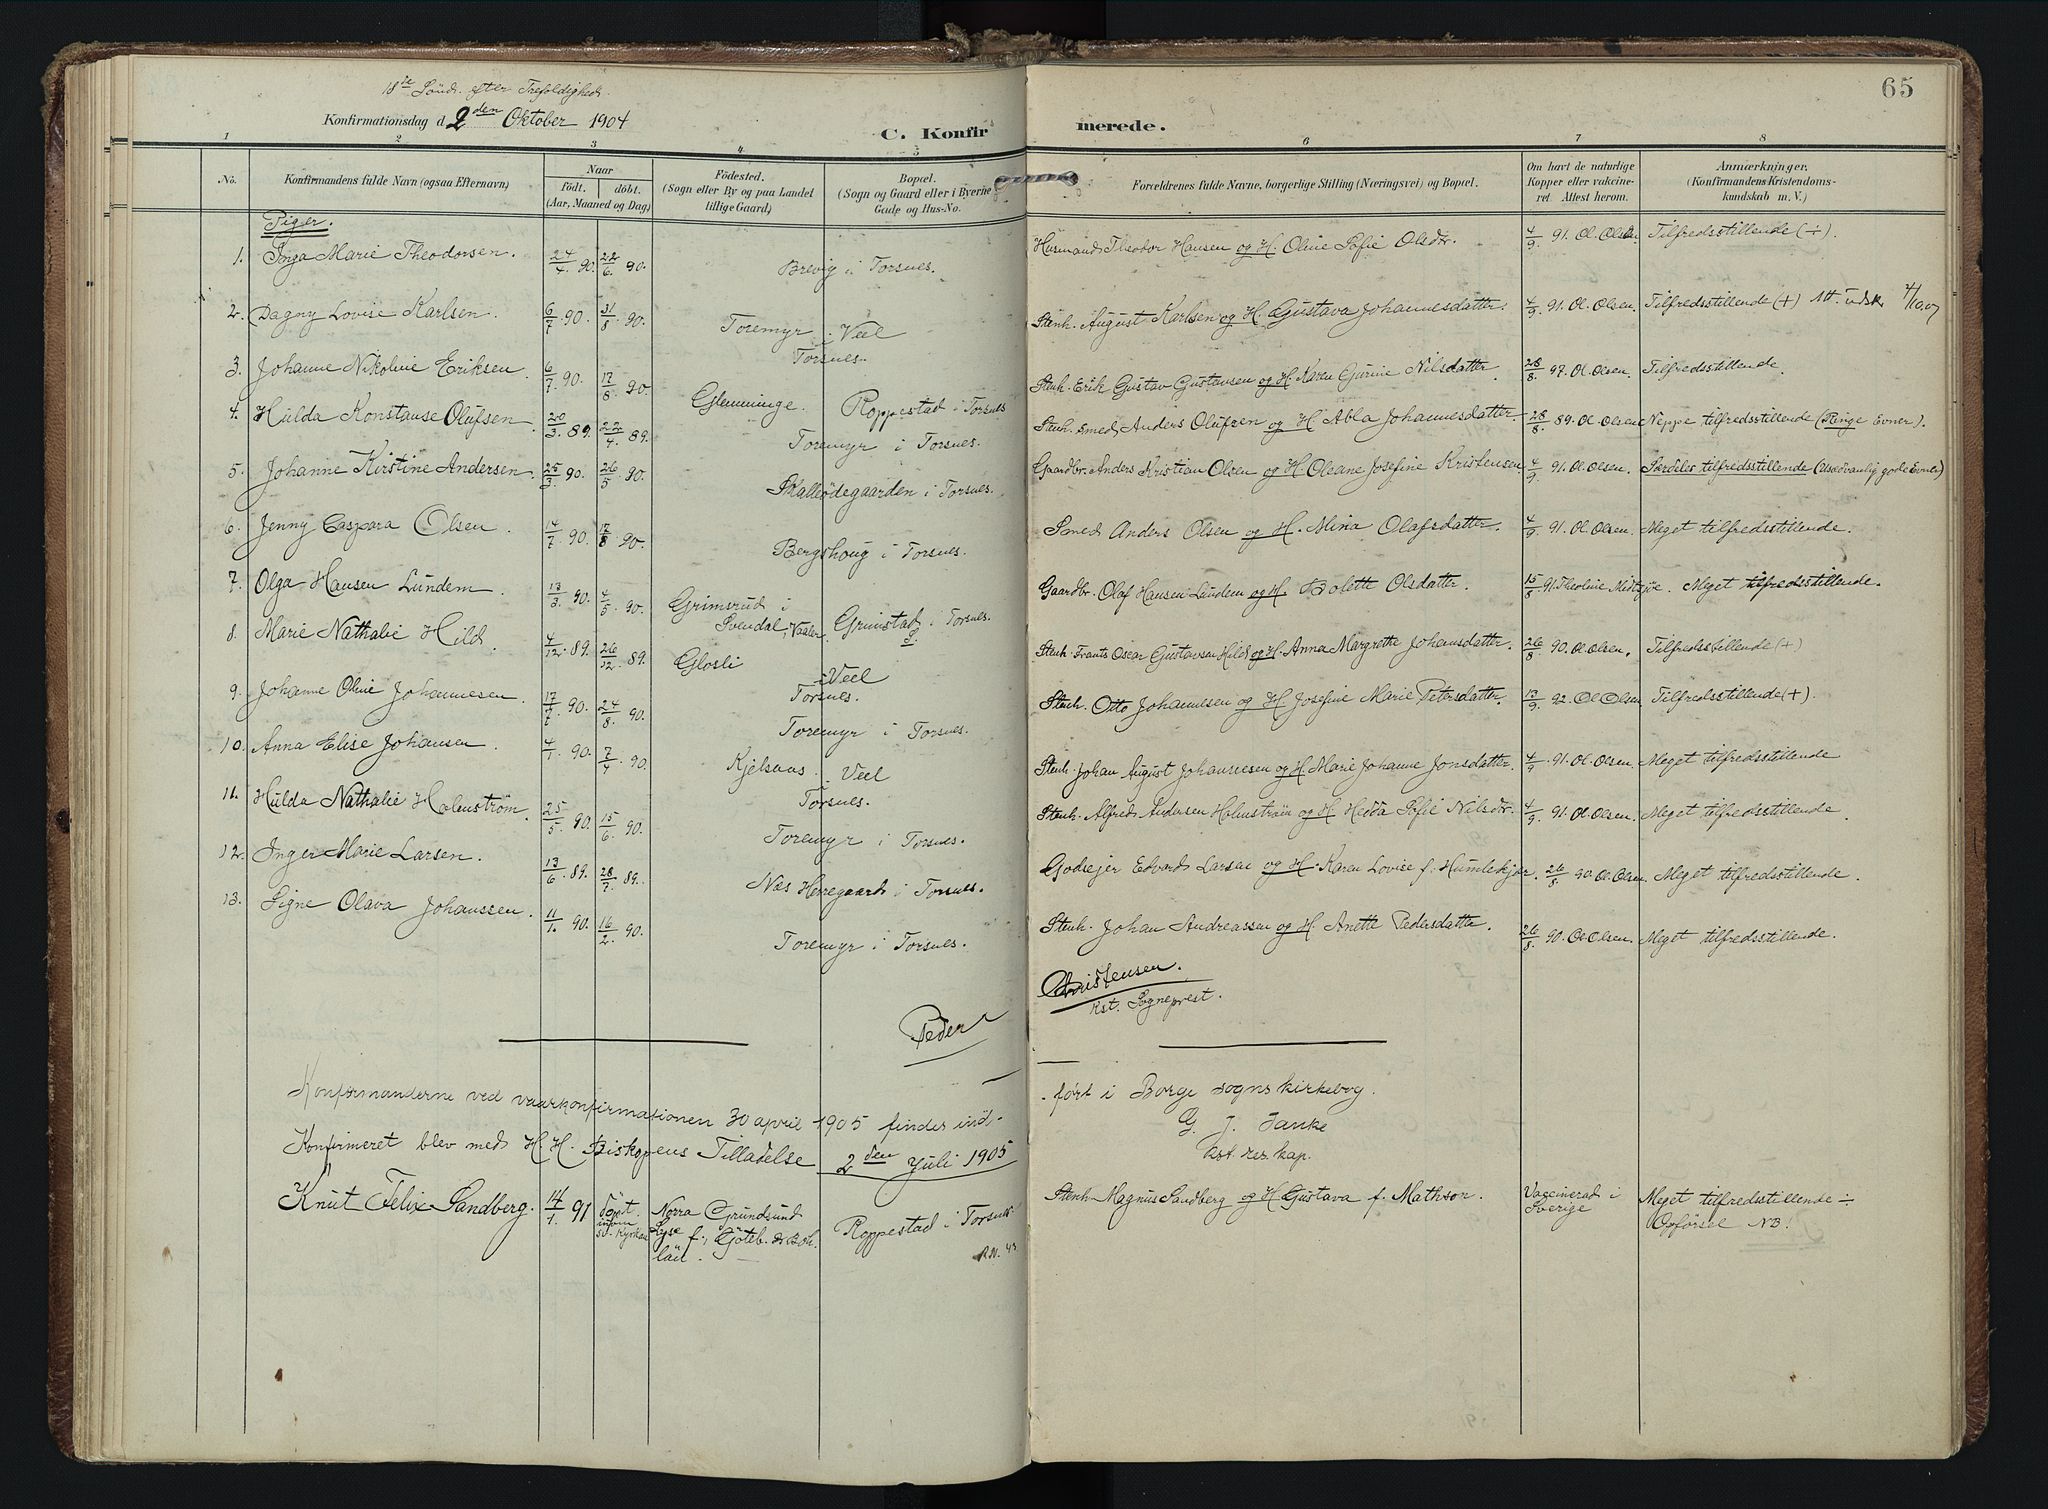 65
18de Sönd. efter Trefoldighed.
Konfirmationsdag d. 2den Oktober 1904
C. Konfirmerede.
1 2 3 4 5 6 7 8
No.
Konfirmandens fulde Navn (ogsaa Efternavn)
Naar
født. døbt.
(Aar, Maaned og Dag)
Födested.
(Sogn eller By og paa Landet
tillige Gaard)
Bopæl.
(Sogn og Gaard eller i Byerne
Gade og Hus-No.
Forældrenes fulde Navne, borgerlige Stilling (Næringsvei) og Bopæl.
Om havt de naturlige
Kopper eller vakcine-
ret. Attest herom.
Anmærkninger.
(Konfirmandens Kristendoms-
kundskab m. V.)
Piger.
1. Inga Marie Theodorsen. 24/4 90. 22/6 90. Brevig i Torsnes. Husmand Theodor Hansen og H. Oline Sofie Olsdtr. 4/9 91. Ol. Olsen. Tilfredsstillende (÷)
2. Dagny Lovise Karlsen. 6/7 90. 31/8 90. Toremyr i Veel Torsnes. Stenh. August Karlsen og H. Gustava Johannesdatter. 4/9 91. Ol. Olsen. Tilfredsstillende (+) Att. udst. 4/10.07
3. Johanne Nikoline Eriksen. 6/7 90. 17/8 90. Glemminge. Roppestad i Torsnes Stenh. Erik Gustav Gustavsen og H. Karen Gurine Nilsdatter. 28/8. 97. Ol. Olsen. Tilfredsstillende.
4. Hulda Konstanse Olufsen. 20/3 89. 22/4 89. Toremyr i Torsnes. Stenh. smed Anders Olufsen og H. Abla Johannesdatter 28/8. 89. Ol. Olsen Neppe tilfredsstillende (Ringe Evner).
5. Johanne Kirstine Andersen. 25/3 90. 26/5 90. Skalleödegaarden i Torsnes. Gaardbr. Anders Kristian Olsen og H. Oleane Josefine Kristensen 4/9 91. Ol. Olsen. Særdeles tilfredsstillende (Usædvanlig gode Evner)
6. Jenny Caspara Olsen. 14/7 90. 17/8 90. Bergshoug i Torsnes. Smed Anders Olsen og H. Mina Olafsdatter. 4/9 91. Ol. Olsen. Meget tilfredsstillende.
7. Olga Hansen Lundem. 13/3 90. 4/5 90. Grimsrud i Svendal, Vaaler Grimstad i Torsnes. Gaardbr. Olaf Hansen Lundem og H. Bolette Olsdatter. 15/8 91. Theoline Meget tilfredsstillende.
8. Marie Nathalie Hild. 4/12. 89. 26/12 89. Glosli i Veel Torsnes. Stenh. Frants Oscar Gustavsen Hild og H. Anna Margrethe Johansdatter. 26/8 90. Ol. Olsen. Tilfredsstillende (+)
9. Johanne Oline Johannesen. 17/7 90. 24/8 90. Toremyr i Torsnes. Stenh. Otto Johannesen og H. Josefine Marie Petersdatter. 13/9 92. Ol Olsen Tilfredsstillende (+).
10. Anna Elise Johansen. 4/1. 90. 7/4 90. Kjelsaas. Veel Torsnes. Stenh. Johan August Johannesen og H. Marie Johanne Jonsdatter. 4/9. 91. Ol. Olsen. Meget tilfredsstillende
11. Hulda Nathalie Holmström. 25/5 90. 15/6 90. Toremyr i Torsnes. Stenh. Alfred Andersen Holmström og H. Hedda Sofie Nilsdtr. 4/9 91. Ol. Olsen. Meget tilfredsstillende.
12. Inger Marie Larsen. 13/6. 89. 28/7 89. Næs Herregaard i Torsnes. Godseier Edvard Larsen og H. Karen Lovise f. Humlekjær. 26/8. 90. Ol. Olsen. Meget tilfredsstillende.
13. Signe Olava Johanssen. 11/1. 90. 16/2. 90. Toremyr i Torsnes. Stenh. Johan Andreassen og H. Anette Pedersdatter. 26/8. 90. Ol. Olsen. Meget tilfredsstillende.
Peder Christensen.
kst. Sogneprest.
Konfirmanderne ved vaarkonfirmationen 30 april 1905 findes ind-
- ført i Borge sogns kirkebog.
G. J. Janke
kst. res. kap.
Konfirmeret blev med H. H. Biskopens Tilladelse 2den Juli 1905
Knut Felix Sandberg. 14/1. 91 döpt. inom sv. Kyrkan Norra Grundsund Lyse f., Göteb. & Boh. län. Roppestad i Torsnes Stenh. Magnus Sandberg og H. Gustava f. Mathson. Vaccinerad i Sverige Meget tilfredsstillende ÷ Opførsel NB!